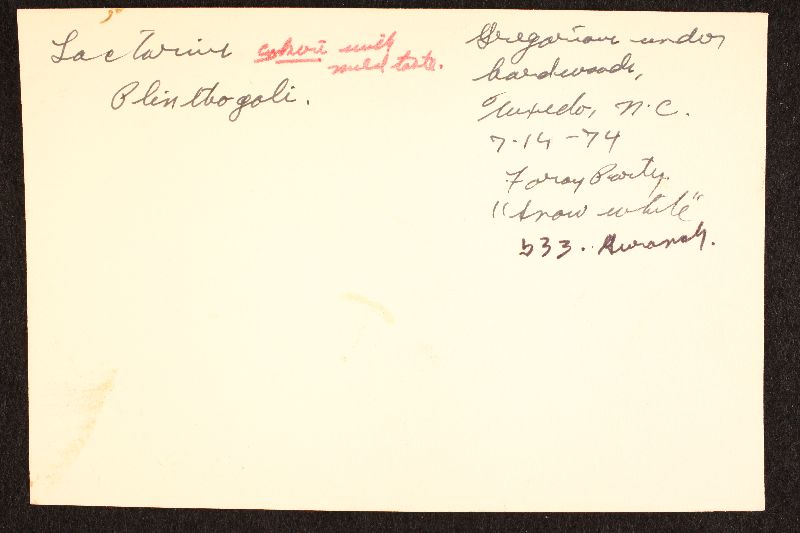 Lactarius with
mild taste.
Plinthogali.
Gregarious under
hardwoods,
Tuxedo, N.C.
7-14-74
Foray Party.
"Snow white"
533.